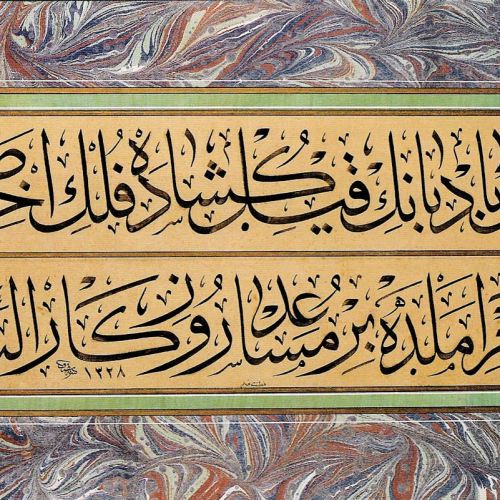 بادبانك قيل كشاده فلك اخضـ
املده بر مساعد روزكار الـ
١٣٢٨